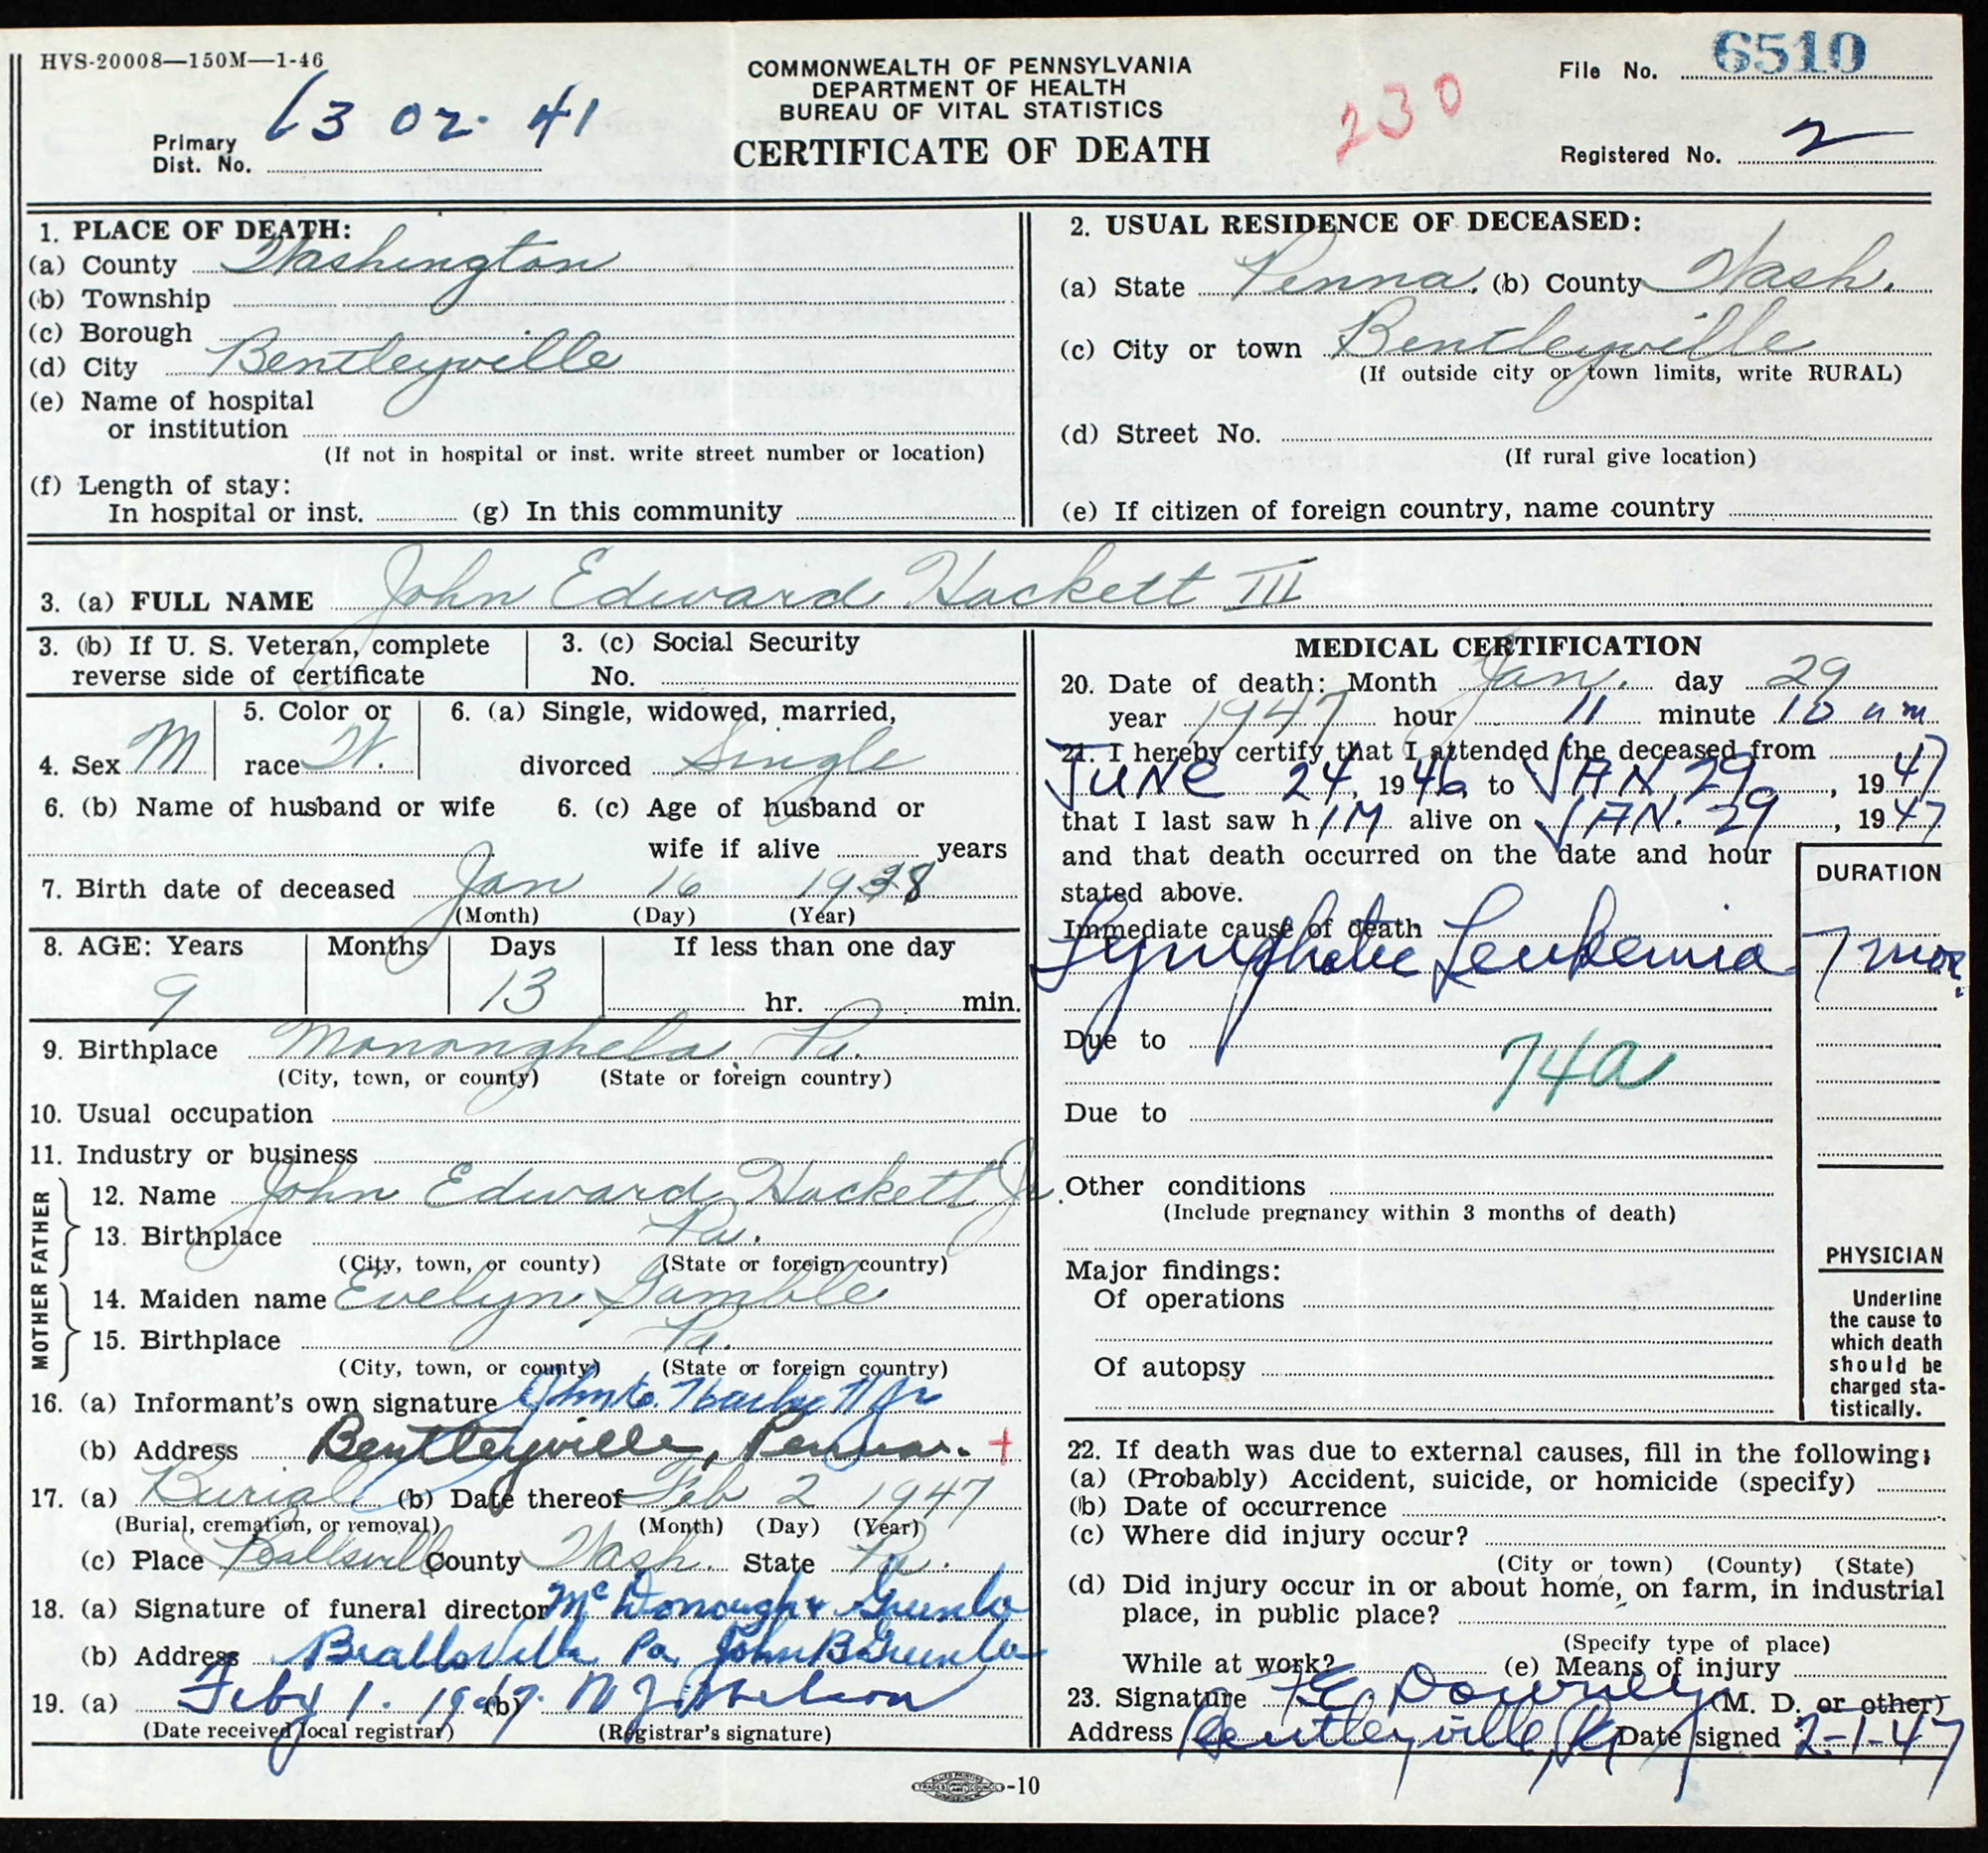 HVS-20008—150M—1-46
COMMONWEALTH OF PENNSYLVANIA
DEPARTMENT OF HEALTH
BUREAU OF VITAL STATISTICS
CERTIFICATE OF DEATH
File No. 6510
230
Primary Dist. No. 63 02 · 41
Registered No. 2
1. PLACE OF DEATH:
(a) County Washington
(b) Township
(c) Borough
(d) City Bentleyville
(e) Name of hospital
or institution
(If not in hospital or inst. write street number or location)
(f) Length of stay:
In hospital or inst. (g) In this community
2. USUAL RESIDENCE OF DECEASED:
(a) State Penna. (b) County Wash.
(c) City or town Bentleyville
(If outside city or town limits, write RURAL)
(d) Street No.
(If rural give location)
(e) If citizen of foreign country, name country
3. (a) FULL NAME John Edward Hackett III
3. (b) If U. S. Veteran, complete
reverse side of certificate
3. (c) Social Security
No.
4. Sex M
5. Color or
race W.
6. (a) Single, widowed, married,
divorced Single
6. (b) Name of husband or wife
6. (c) Age of husband or
wife if alive years
7. Birth date of deceased Jan 16 1938
(Month) (Day) (Year)
8. AGE: Years Months Days If less than one day
9 13 hr. min.
9. Birthplace Mononghela, Pa.
(City, town, or county) (State or foreign country)
10. Usual occupation
11. Industry or business
FATHER
12. Name John Edward Hackett Jr.
13. Birthplace Pa.
(City, town, or county) (State or foreign country)
MOTHER
14. Maiden name Evelyn Gamble
15. Birthplace Pa.
(City, town, or county) (State or foreign country)
16. (a) Informant's own signature John E. Hackett Jr
(b) Address Bentleyville, Penna. +
17. (a) Burial (b) Date thereof Feb 2 1947
(Burial, cremation, or removal) (Month) (Day) (Year)
(c) Place County Wash. State Pa.
18. (a) Signature of funeral director McDonough &
(b) Address Pa. John B
19. (a) Feby 1. 1947. (b) N J
(Date received local registrar) (Registrar's signature)
MEDICAL CERTIFICATION
20. Date of death: Month Jan. day 29
year 1947 hour 11 minute 10 a m
21. I hereby certify that I attended the deceased from
JUNE 24, 1946, to JAN. 29, 1947
that I last saw h IM alive on JAN. 29, 1947
and that death occurred on the date and hour
stated above.
DURATION
Immediate cause of death
Lymphatic Leukemia 7 mos.
Due to
74a
Due to
Other conditions
(Include pregnancy within 3 months of death)
Major findings:
Of operations
Of autopsy
PHYSICIAN
Underline
the cause to
which death
should be
charged sta-
tistically.
22. If death was due to external causes, fill in the following:
(a) (Probably) Accident, suicide, or homicide (specify)
(b) Date of occurrence
(c) Where did injury occur?
(City or town) (County) (State)
(d) Did injury occur in or about home, on farm, in industrial
place, in public place?
(Specify type of place)
While at work? (e) Means of injury
23. Signature Downey (M. D. or other)
Address Bentleyville, Pa Date signed 2-1-47
-10